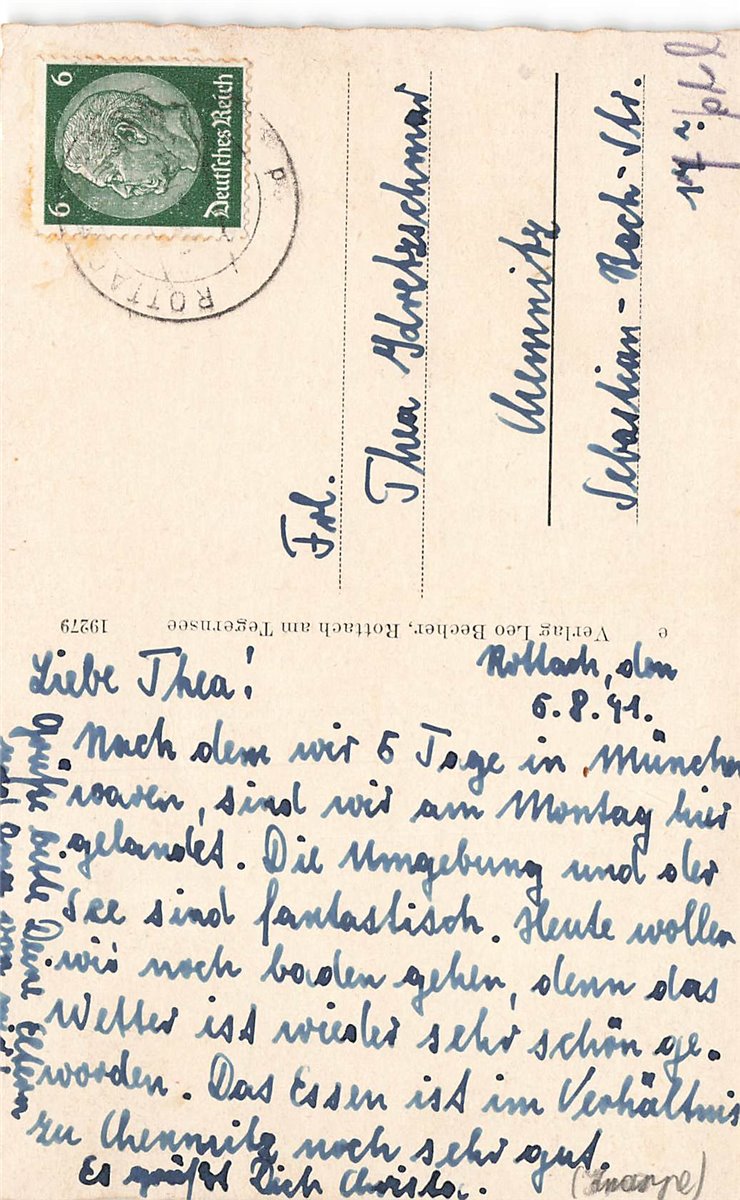 Rottach, den
6.8.41.
Liebe Thea!
Nach dem wir 5 Tage in München
waren, sind wir am Montag hier
gelandet. Die Umgebung und der
See sind fantastisch. Heute wollen
wir noch baden gehen, denn das
Wetter ist wieder sehr schön ge-
worden. Das Essen ist im Verhältnis
zu Chemnitz noch sehr gut.
Es grüßt Dich Christa.
Grüße bitte Deine Eltern
und Oma von mir!
e Verlag Leo Becher, Rottach am Tegernsee 19279
Frl.
Thea Gdretzschmar
Chemnitz
Sebastian-Bach-Str.
17
Deutsches Reich
6 6
ROTTA